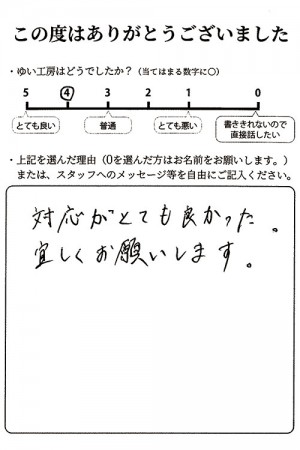 この度はありがとうございました
・ゆい工房はどうでしたか？（当てはまる数字に○）
5 4 3 2 1 0
とても良い 普通 とても悪い 書ききれないので直接話したい
・上記を選んだ理由（0を選んだ方はお名前をお願いします。）
または、スタッフへのメッセージ等を自由にご記入ください。
対応がとても良かった。
宜しくお願いします。